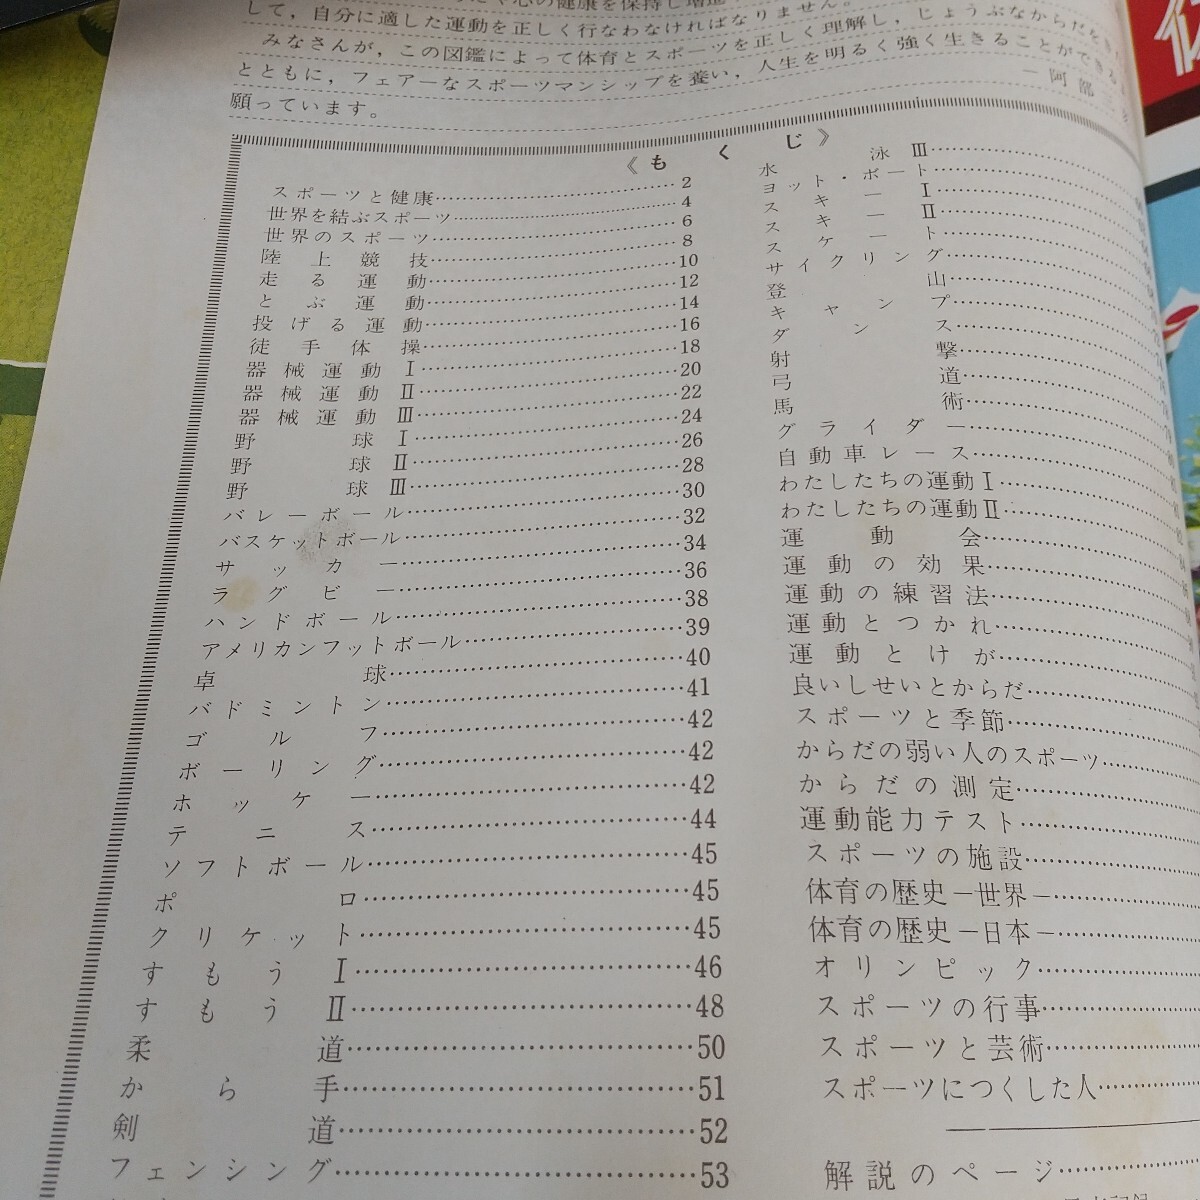 心の健康を保持し増進
して，自分に適した運動を正しく行なわなければなりません。
みなさんが，この図鑑によって体育とスポーツを正しく理解し，じょうぶなからだを
とともに，フェアーなスポーツマンシップを養い，人生を明るく強く生きることができる
願っています。
－阿部三
《もくじ》
スポーツと健康……2
世界を結ぶスポーツ……4
世界のスポーツ……6
陸上競技……8
走る運動……10
とぶ運動……12
投げる運動……14
徒手体操……16
器械運動Ⅰ……18
器械運動Ⅱ……20
器械運動Ⅲ……22
野球Ⅰ……24
野球Ⅱ……26
野球Ⅲ……28
バレーボール……30
バスケットボール……32
サッカー……34
ラグビー……36
ハンドボール……38
アメリカンフットボール……39
卓球……40
バドミントン……41
ゴルフ……42
ボーリング……42
ホッケー……42
テニス……44
ソフトボール……45
ポロ……45
クリケット……45
すもうⅠ……46
すもうⅡ……48
柔道……50
から手……51
剣道……52
フェンシング……53
水泳Ⅲ……
ヨット・ボート……
スキーⅠ……
スキーⅡ……
スケート……
サイクリング……
登山……
キャンプ……
ダンス……
射撃……
弓道……
馬術……
グライダー……
自動車レース……
わたしたちの運動Ⅰ……
わたしたちの運動Ⅱ……
運動会……
運動の効果……
運動の練習法……
運動とつかれ……
運動とけが……
良いしせいとからだ……
スポーツと季節……
からだの弱い人のスポーツ……
からだの測定……
運動能力テスト……
スポーツの施設……
体育の歴史－世界－……
体育の歴史－日本－……
オリンピック……
スポーツの行事……
スポーツと芸術……
スポーツにつくした人……
解説のページ……